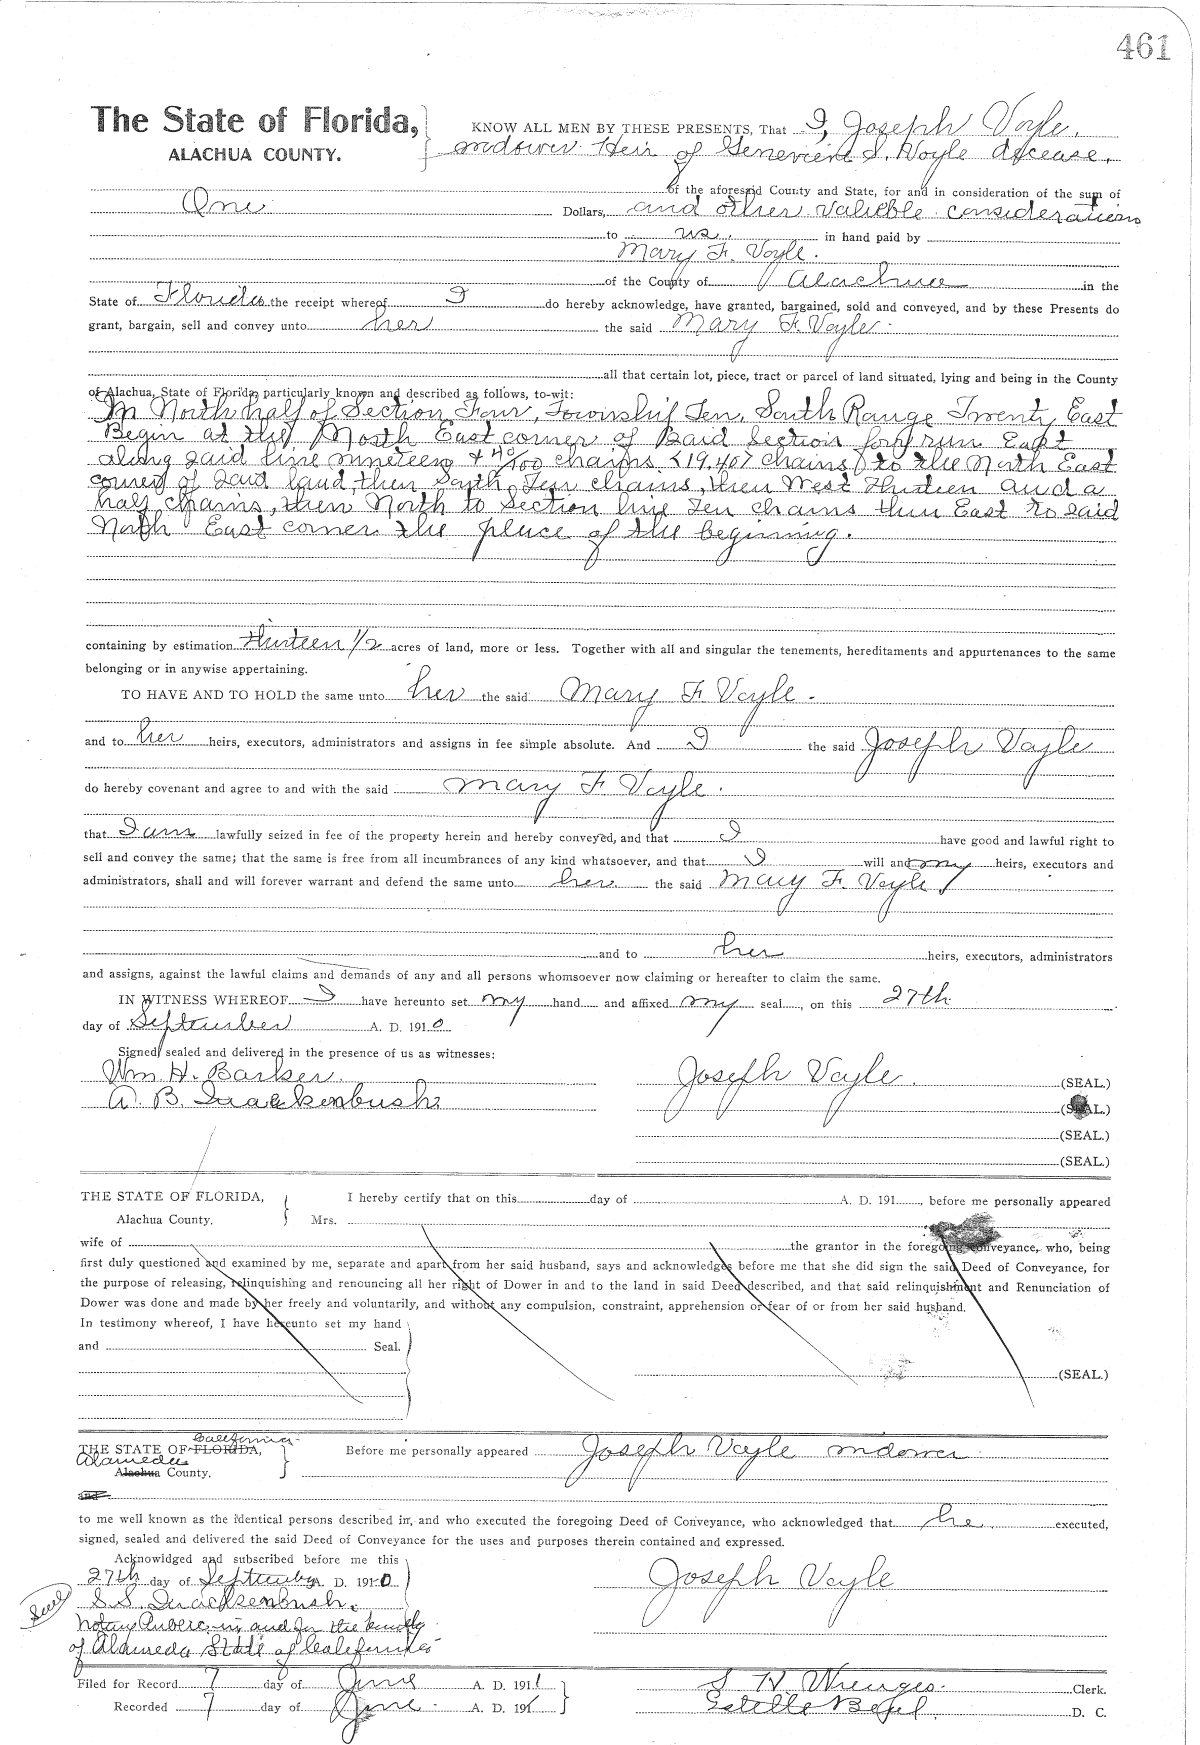 461
The State of Florida,
ALACHUA COUNTY.
KNOW ALL MEN BY THESE PRESENTS, That I, Joseph Voyle,
widower Heir of Genevieve S. Voyle decease.
of the aforesaid County and State, for and in consideration of the sum of
One Dollars, and other valuble considerations
to us in hand paid by
Mary F. Voyle.
of the County of Alachua in the
State of Florida the receipt whereof I do hereby acknowledge, have granted, bargained, sold and conveyed, and by these Presents do
grant, bargain, sell and convey unto her the said Mary F. Voyle.
all that certain lot, piece, tract or parcel of land situated, lying and being in the County
of Alachua, State of Florida, particularly known and described as follows, to-wit:
In North half of Section Four, Township Ten, South Range Twenty East
Begin at the North East corner of Said Section run East
along said line nineteen & 40/100 chains (19.40 chains) to the North East
corner of said land, then South Ten chains, then West Thirteen and a
half chains, then North to Section line Ten chains then East to said
North East corner the place of the beginning.
containing by estimation thirteen 1/2 acres of land, more or less. Together with all and singular the tenements, hereditaments and appurtenances to the same
belonging or in anywise appertaining.
TO HAVE AND TO HOLD the same unto her the said Mary F Voyle.
and to her heirs, executors, administrators and assigns in fee simple absolute. And I the said Joseph Voyle
do hereby covenant and agree to and with the said Mary F Voyle.
that I am lawfully seized in fee of the property herein and hereby conveyed, and that I have good and lawful right to
sell and convey the same; that the same is free from all incumbrances of any kind whatsoever, and that I will and my heirs, executors and
administrators, shall and will forever warrant and defend the same unto her the said Mary F. Voyle
and to her heirs, executors, administrators
and assigns, against the lawful claims and demands of any and all persons whomsoever now claiming or hereafter to claim the same.
IN WITNESS WHEREOF I have hereunto set my hand and affixed my seal, on this 27th
day of September A. D. 1910
Signed, sealed and delivered in the presence of us as witnesses:
Wm H. Barker. Joseph Voyle. (SEAL.)
A. B. Quackenbush. (SEAL.)
(SEAL.)
(SEAL.)
THE STATE OF FLORIDA,
Alachua County.
I hereby certify that on this day of A. D. 191 , before me personally appeared
Mrs.
wife of the grantor in the foregoing conveyance, who, being
first duly questioned and examined by me, separate and apart from her said husband, says and acknowledges before me that she did sign the said Deed of Conveyance, for
the purpose of releasing, relinquishing and renouncing all her right of Dower in and to the land in said Deed described, and that said relinquishment and Renunciation of
Dower was done and made by her freely and voluntarily, and without any compulsion, constraint, apprehension or fear of or from her said husband.
In testimony whereof, I have hereunto set my hand
and Seal.
(SEAL.)
California
THE STATE OF FLORIDA,
Alameda
Alachua County.
Before me personally appeared Joseph Voyle widower
and
to me well known as the identical persons described in, and who executed the foregoing Deed of Conveyance, who acknowledged that he executed,
signed, sealed and delivered the said Deed of Conveyance for the uses and purposes therein contained and expressed.
Acknowldged and subscribed before me this
27th day of September A. D. 1910
Joseph Voyle
Seal
S. S. Quackenbush.
Notary Public in and for the County
of Alameda State of California
Filed for Record 7 day of June A. D. 1911
Clerk.
Recorded 7 day of June A. D. 191
Estelle D. C.